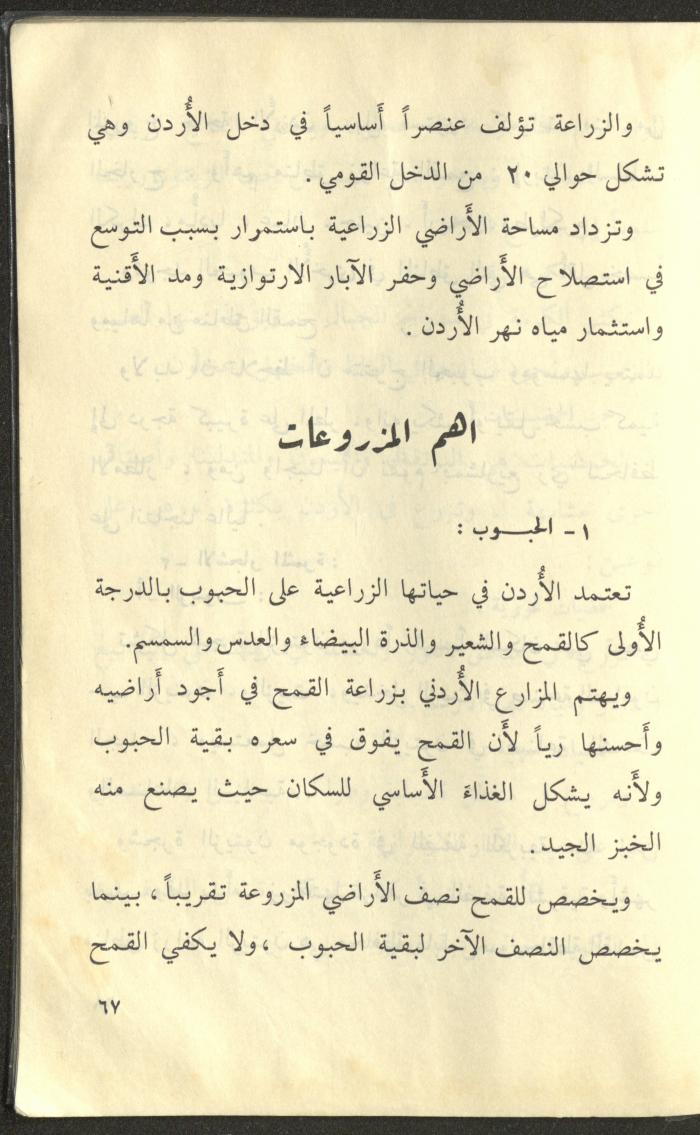 والزراعة تؤلف عنصراً أَساسياً في دخل الأُردن وهي
تشكل حوالي ٢٠ من الدخل القومي .
وتزداد مساحة الأَراضي الزراعية باستمرار بسبب التوسع
في استصلاح الأَراضي وحفر الآبار الارتوازية ومد الأَقنية
واستثمار مياه نهر الأُردن .
اهم المزروعات
١ - الحبوب :
تعتمد الأُردن في حياتها الزراعية على الحبوب بالدرجة
الأُولى كالقمح والشعير والذرة البيضاء والعدس والسمسم.
ويهتم المزارع الأُردني بزراعة القمح في أَجود أَراضيه
وأَحسنها رياً لأَن القمح يفوق في سعره بقية الحبوب
ولأَنه يشكل الغذاءَ الأَساسي للسكان حيث يصنع منه
الخبز الجيد .
ويخصص للقمح نصف الأَراضي المزروعة تقريباً ، بينما
يخصص النصف الآخر لبقية الحبوب ،ولا يكفي القمح
٦٧